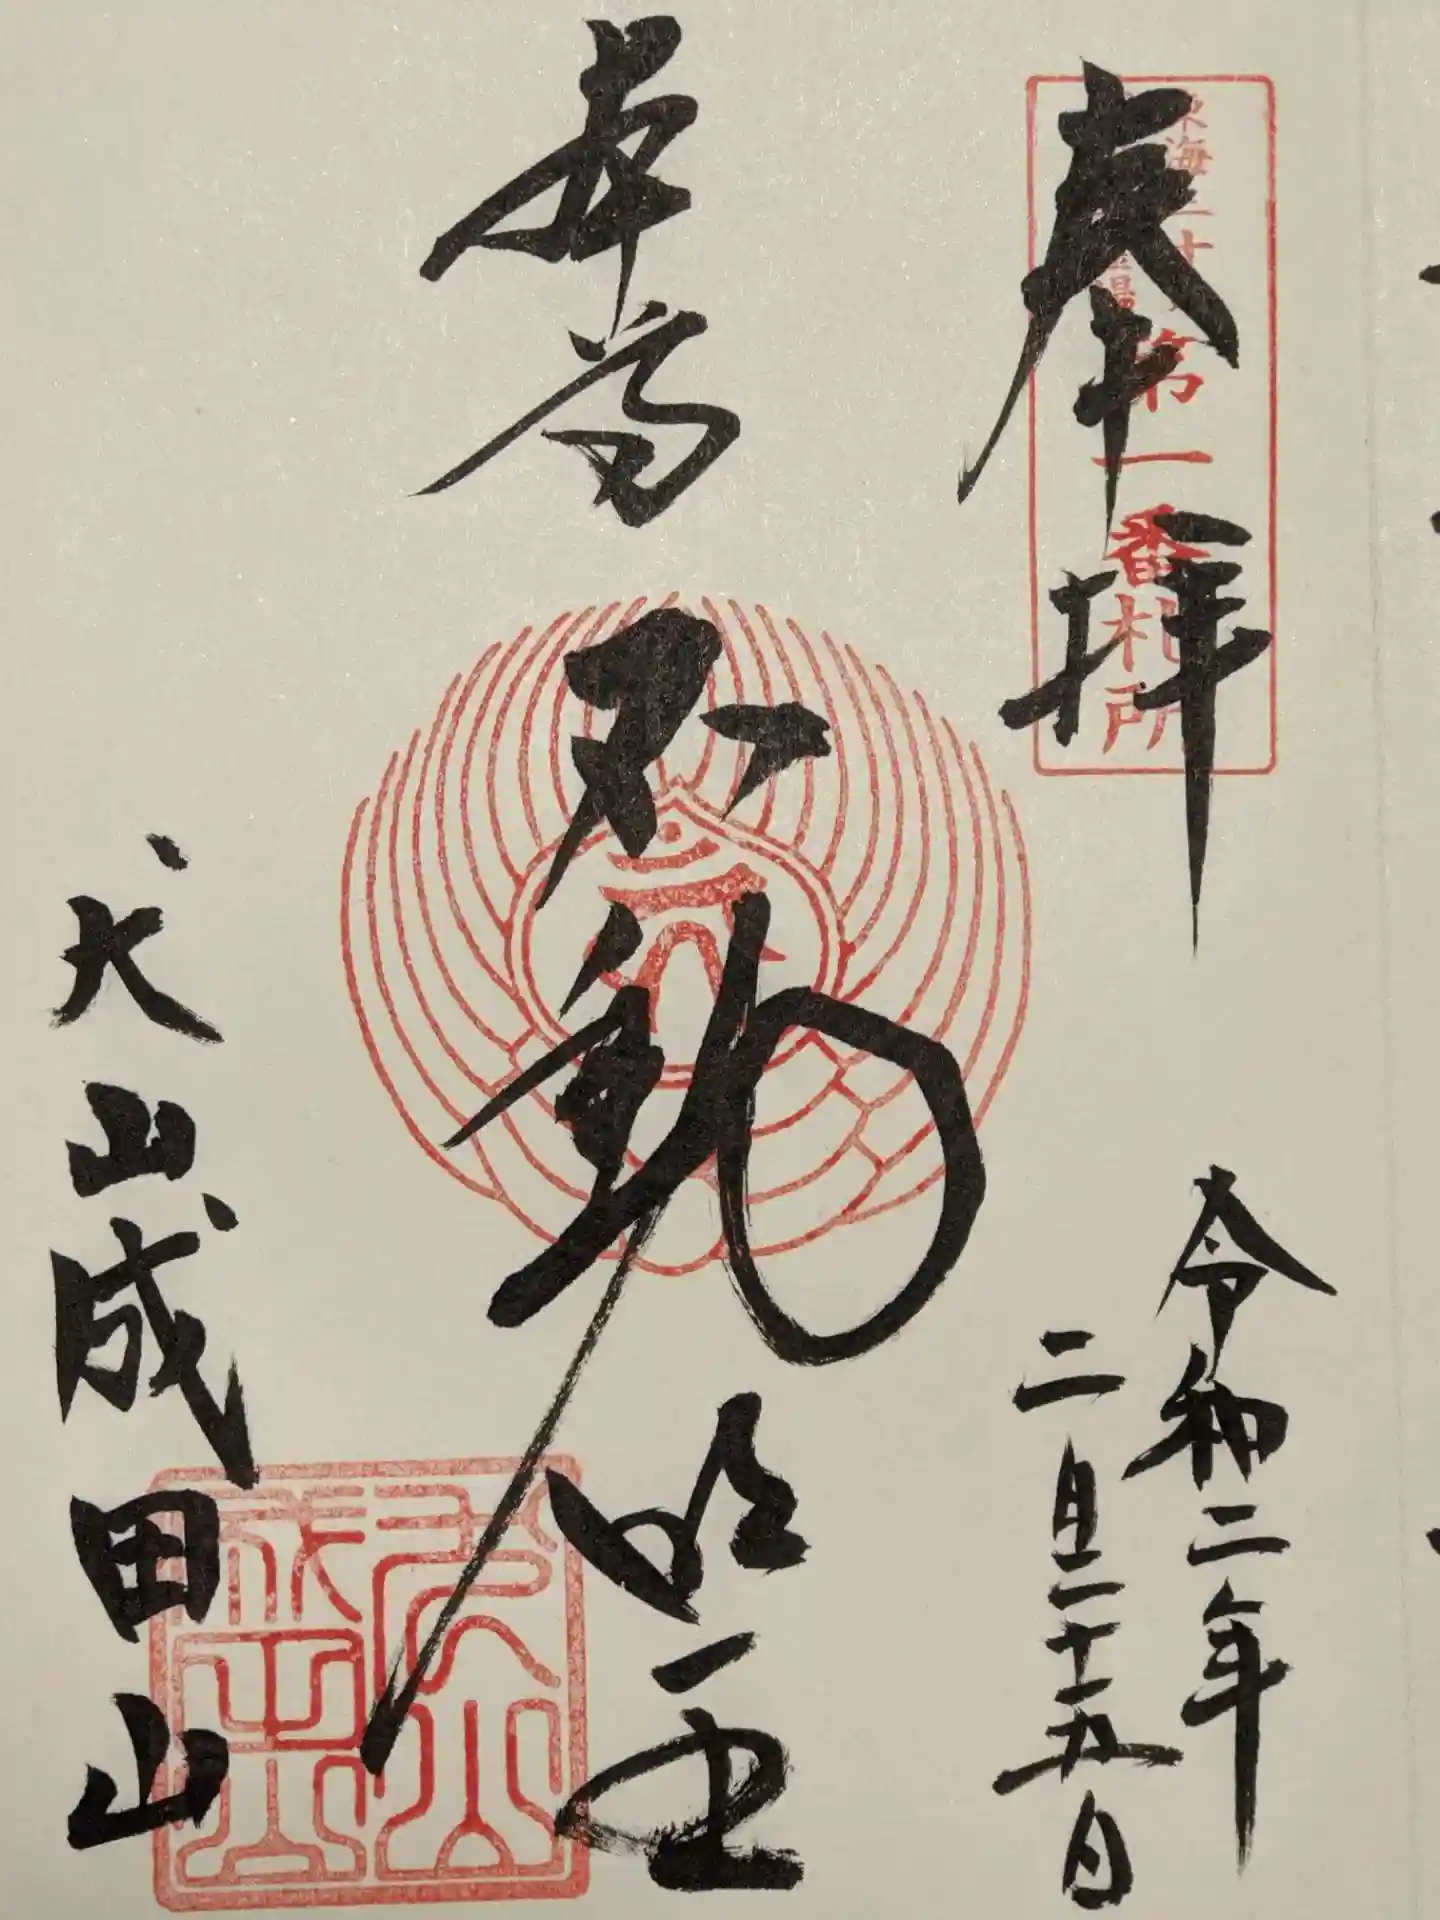 奉拝
東海三十六
第一番札所
令和二年
二月二十九日
本尊
不動明王
犬山成田山